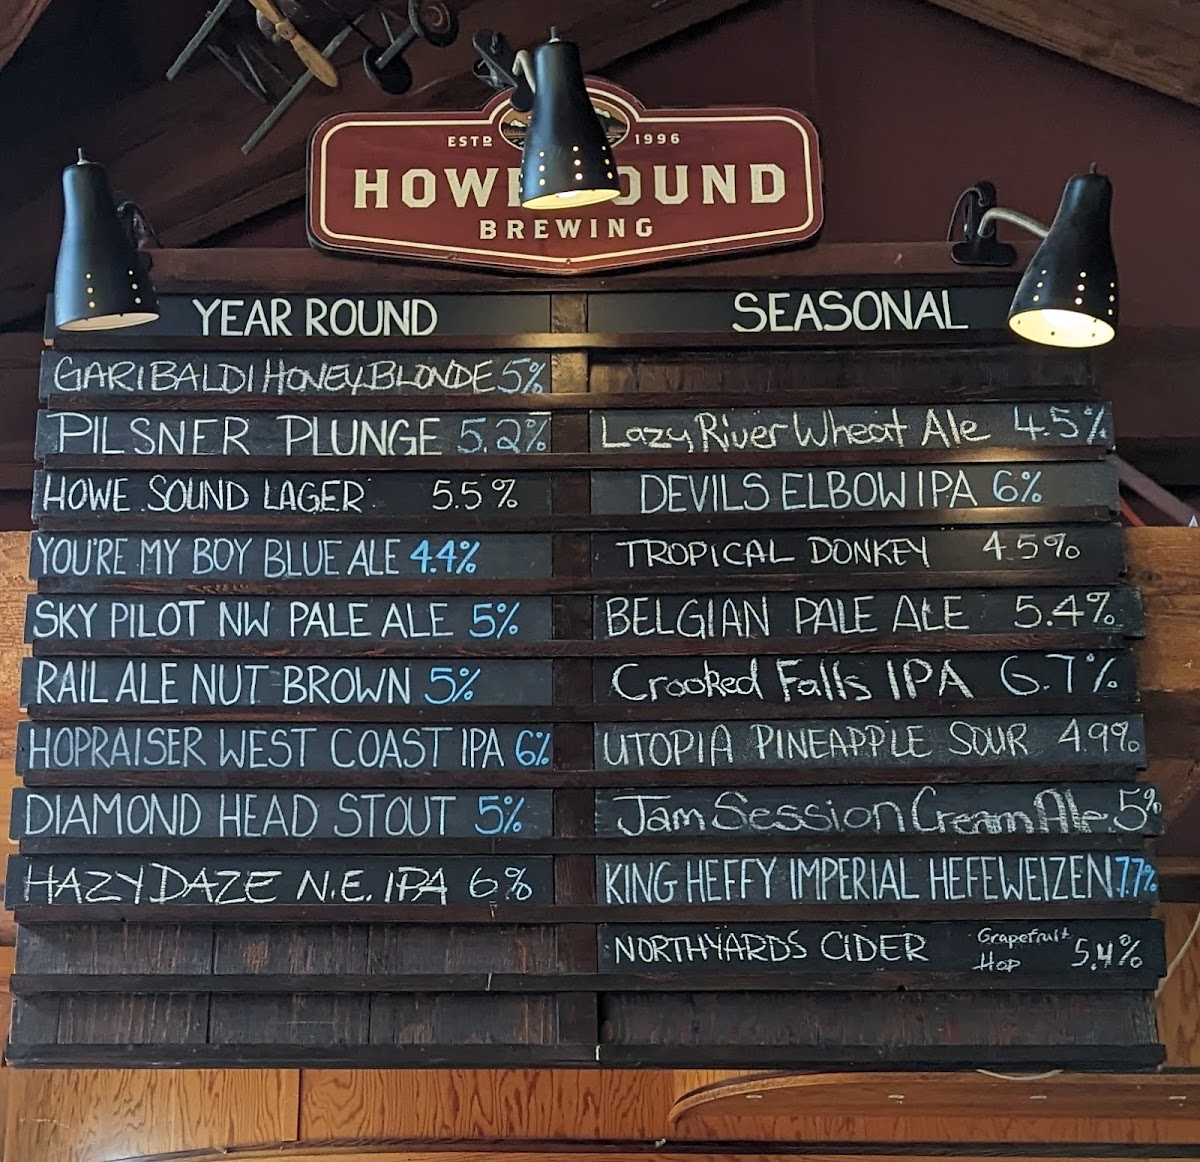 ESTD 1996
HOWE SOUND
BREWING
YEAR ROUND
GARIBALDI HONEY BLONDE 5%
PILSNER PLUNGE 5.2%
HOWE SOUND LAGER 5.5%
YOU'RE MY BOY BLUE ALE 4.4%
SKY PILOT NW PALE ALE 5%
RAIL ALE NUT BROWN 5%
HOPRAISER WEST COAST IPA 6%
DIAMOND HEAD STOUT 5%
HAZY DAZE N.E. IPA 6%
SEASONAL
Lazy River Wheat Ale 4.5%
DEVILS ELBOW IPA 6%
TROPICAL DONKEY 4.5%
BELGIAN PALE ALE 5.4%
Crooked Falls IPA 6.7%
UTOPIA PINEAPPLE SOUR 4.9%
Jam Session Cream Ale 5%
KING HEFFY IMPERIAL HEFEWEIZEN 7.7%
NORTHYARDS CIDER Grapefruit Hop 5.4%